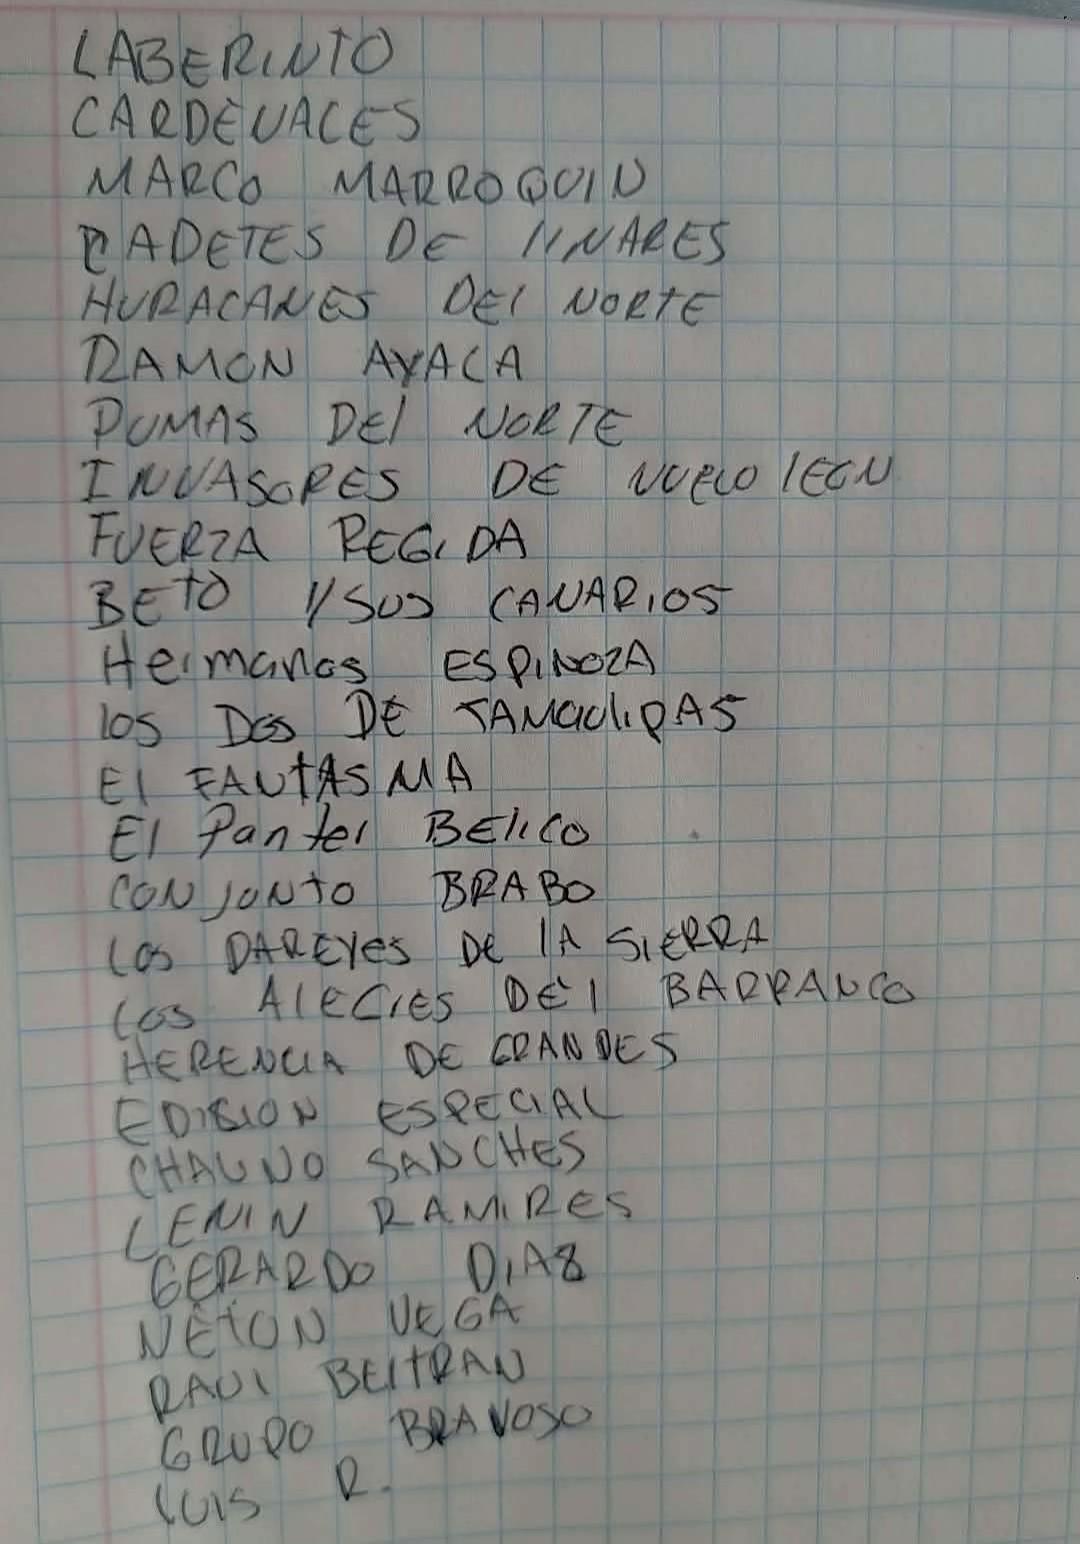 LABERINTO
CARDENALES
MARCO MARROQUIN
CADETES DE lINARES
HURACANES DEl NORTE
RAMON AYALA
PUMAS DEl NORTE
INVASORES DE NUEVO lEON
FUERZA REGIDA
BETO Y SUS CANARIOS
Hermanos ESPINOZA
los Dos DE TAMAulipAS
El FANtASMA
El Panter BElico
CONJUNTO BRABO
Los DAREYes DE lA SiERRA
Los AlEGRES DEl BARRANCO
HERENCIA DE GRANDES
EDISION ESPECIAL
CHALINO SANCHES
LENIN RAMIRES
GERARDO DIAZ
NETON VEGA
RAUl BELTRAN
GRUPO BRAVOSO
LUIS R.